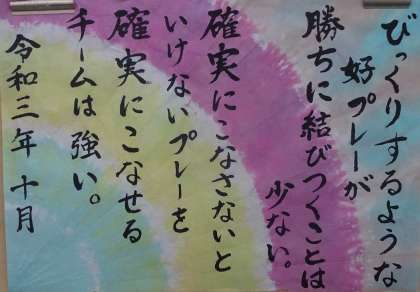 びっくりするような
好プレーが
勝ちに結びつくことは
少ない。
確実にこなさないと
いけないプレーを
確実にこなせる
チームは強い。
令和三年 十月